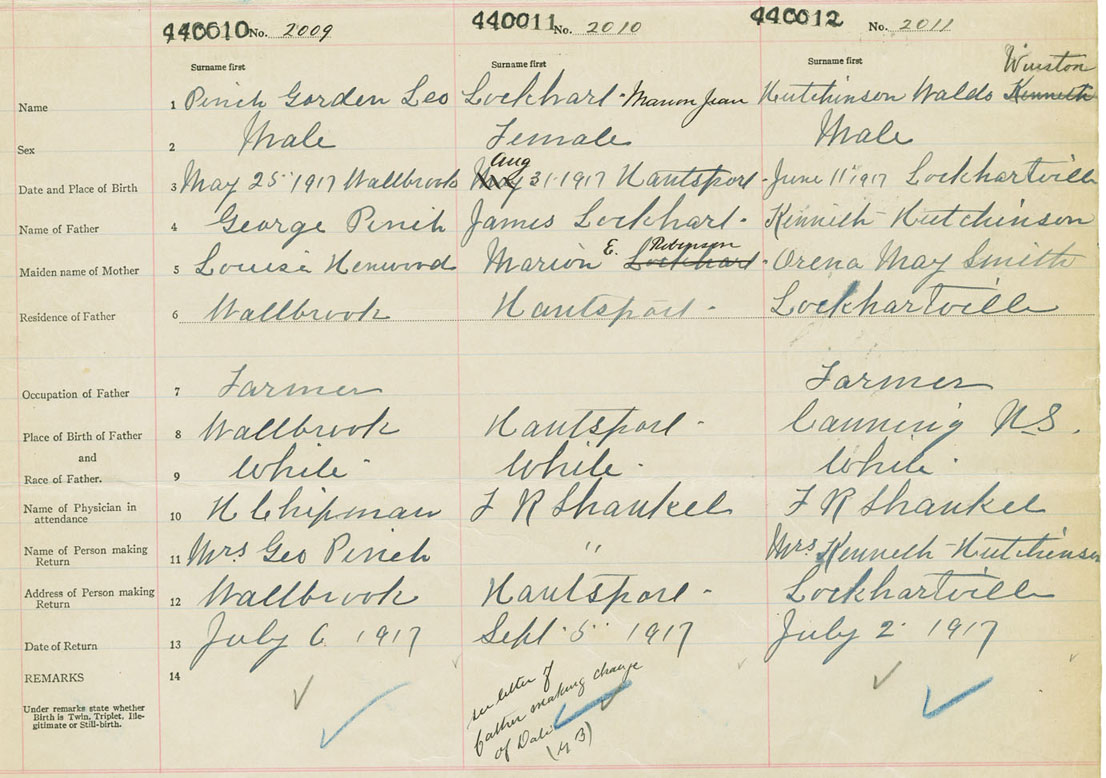 440010 No. 2009 440011 No. 2010 440012 No. 2011
Surname first Surname first Surname first
Winston
Name 1 Pinch Gorden Leo Lockhart - Marion Jean Hutchinson Waldo Kenneth
Sex 2 Male Female Male
Aug
Date and Place of Birth 3 May 25 1917 Wallbrook May 31 - 1917 Hantsport - June 11 1917 Lockhartville
Name of Father 4 George Pinch James Lockhart - Kenneth Hutchinson
Robinson
Maiden name of Mother 5 Louise Henwood Marion E. Lockhart - Orena May Smith
Residence of Father 6 Wallbrook Hantsport - Lockhartville
Occupation of Father 7 Farmer Farmer
Place of Birth of Father 8 Wallbrook Hantsport - Canning N.S.
and
Race of Father. 9 White - White - White -
Name of Physician in
attendance 10 H Chipman F R Shankel F R Shankel
Name of Person making
Return 11 Mrs Geo Pinch " Mrs. Kenneth Hutchinson
Address of Person making
Return 12 Wallbrook Hantsport - Lockhartville
Date of Return 13 July 6 1917 Sept. 5 1917 July 2 1917
REMARKS 14
Under remarks state whether
Birth is Twin, Triplet, Ille-
gitimate or Still-birth.
see letter of
father making change
of Date